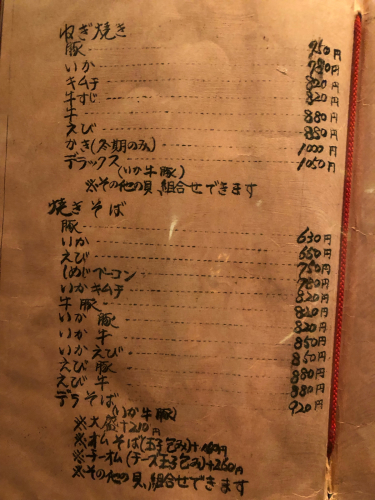 ねぎ焼き
豚 円
いか 780円
キムチ 820円
牛すじ 820円
牛 880円
えび 880円
かき(冬期のみ) 1000円
デラックス 1050円
(いか牛豚)
※その他の具、組合せできます
焼きそば
豚 630円
いか 650円
えび 750円
しめじベーコン 780円
いかキムチ 820円
牛豚 820円
いか 豚 820円
いか 牛 850円
いかえび 850円
えび豚 880円
えび牛 880円
デラそば 920円
(いか牛豚)
※大盛+210円
※オムそば(玉子包み)+円
※チーオム(チーズ玉子包み)+260円
※その他の具、組合せできます